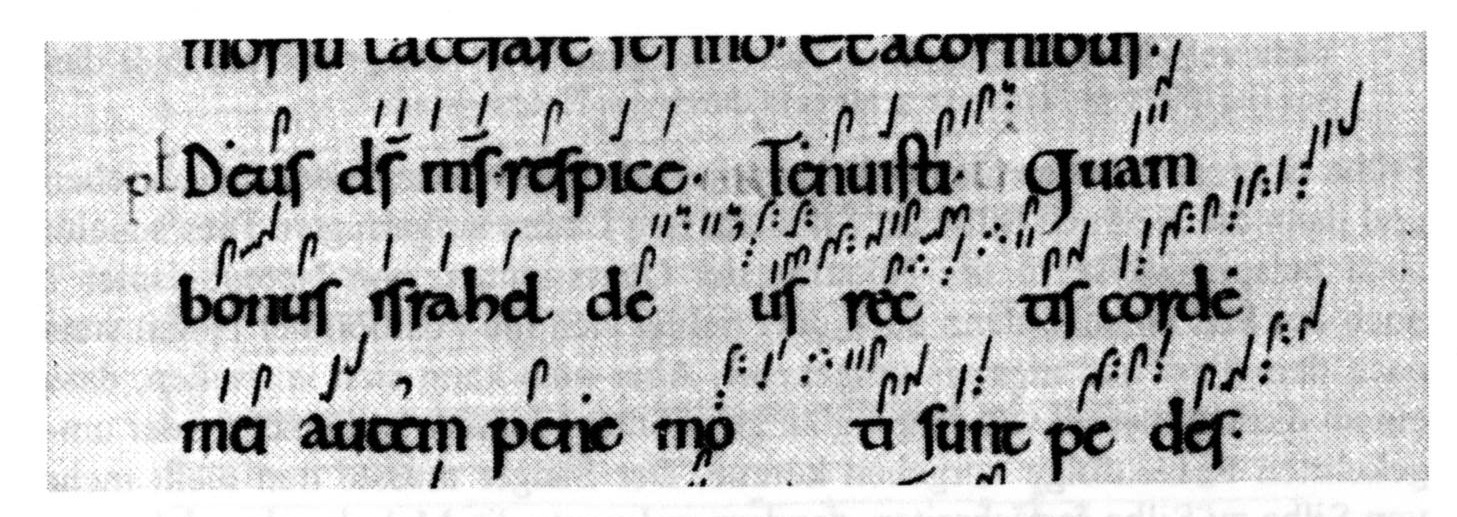 morsu lacerare ferino· Et acornibus·
Deus ds̄ ms̄ respice· Tenuisti· Quam
bonus israhel de us rec tis corde
mei autem pene mo ti sunt pe des·